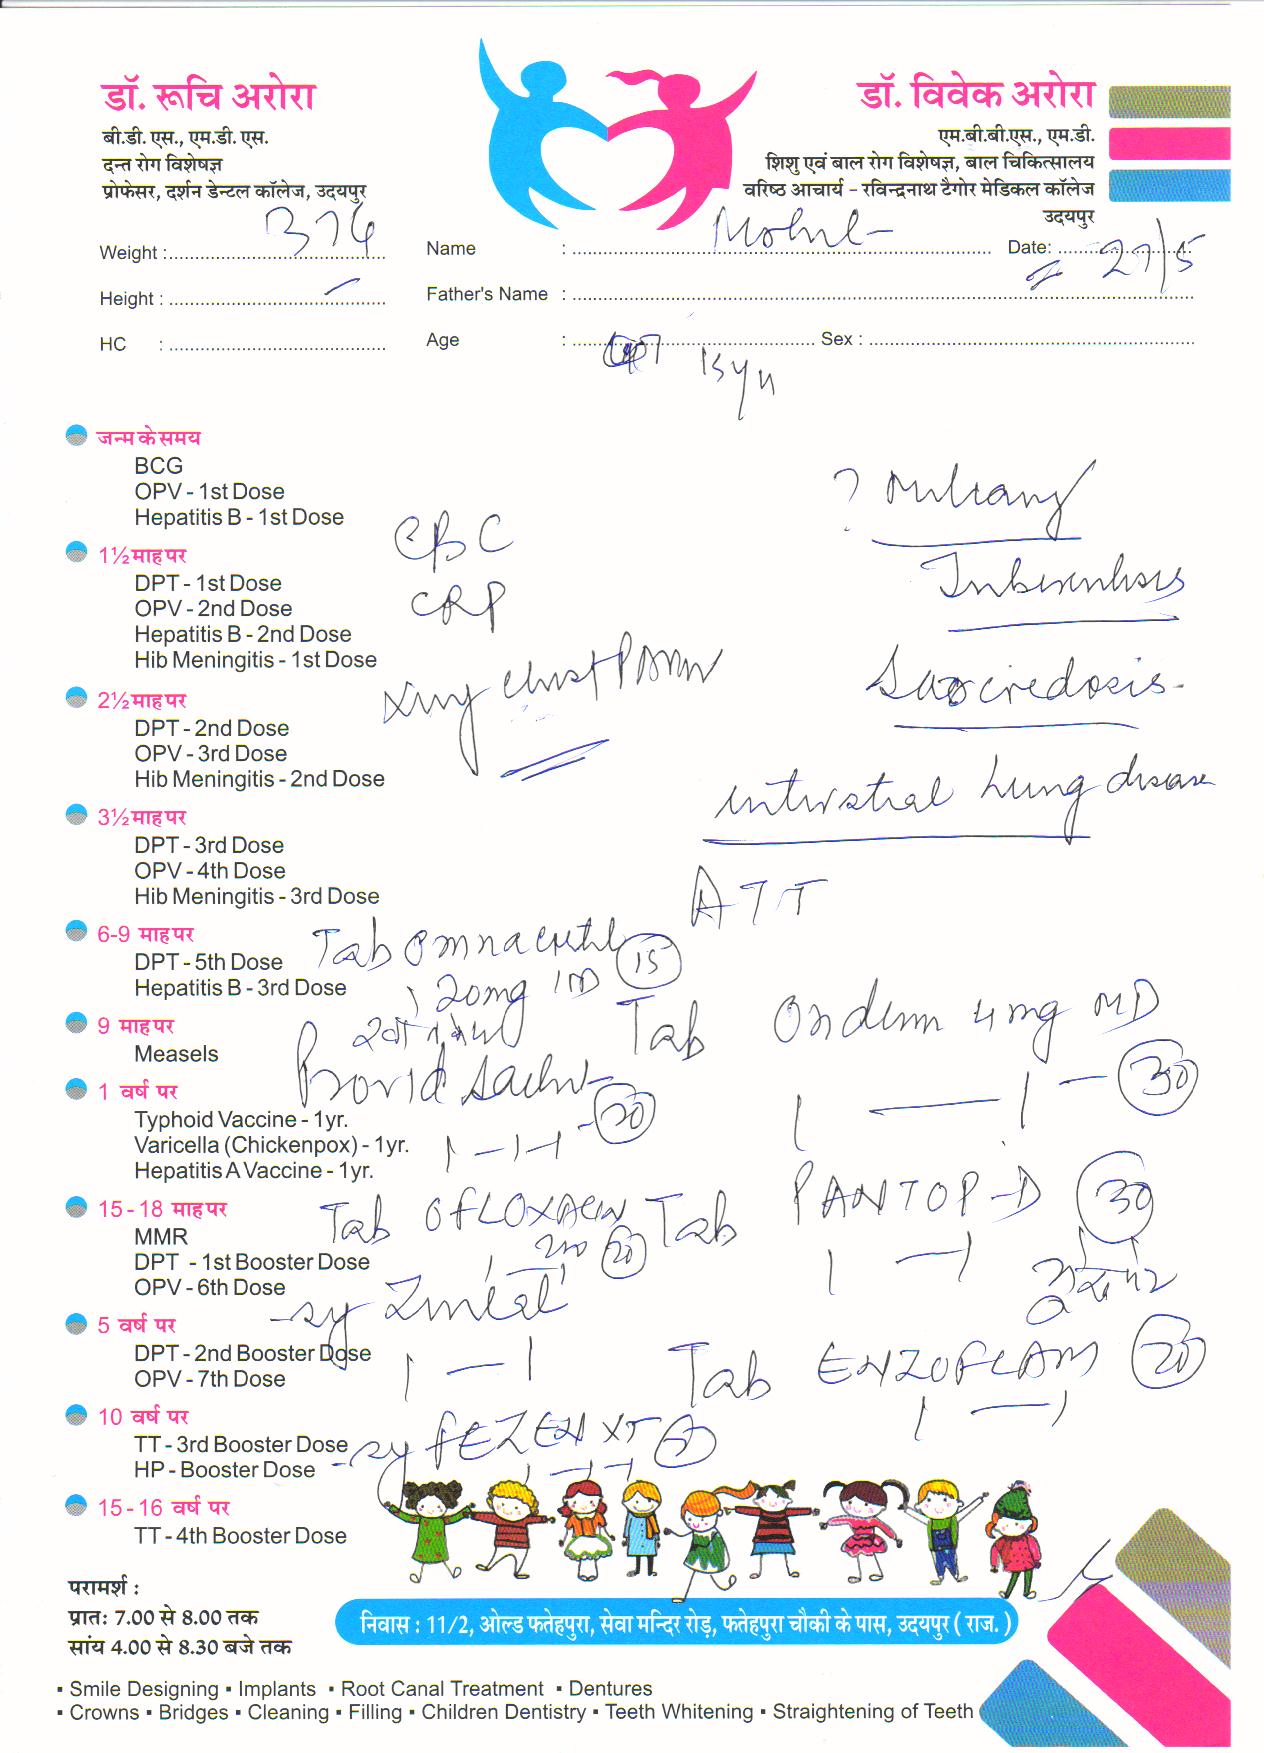 डॉ. रूचि अरोरा
बी.डी. एस., एम.डी. एस.
दन्त रोग विशेषज्ञ
प्रोफेसर, दर्शन डेन्टल कॉलेज, उदयपुर
डॉ. विवेक अरोरा
एम.बी.बी.एस., एम.डी.
शिशु एवं बाल रोग विशेषज्ञ, बाल चिकित्सालय
वरिष्ठ आचार्य - रविन्द्रनाथ टैगोर मेडिकल कॉलेज
उदयपुर
Weight : Name : Date: 27/5
Height : Father's Name :
HC : Age : Sex :
जन्म के समय
BCG
OPV - 1st Dose
Hepatitis B - 1st Dose
1½ माह पर
DPT - 1st Dose
OPV - 2nd Dose
Hepatitis B - 2nd Dose
Hib Meningitis - 1st Dose
2½ माह पर
DPT - 2nd Dose
OPV - 3rd Dose
Hib Meningitis - 2nd Dose
3½ माह पर
DPT - 3rd Dose
OPV - 4th Dose
Hib Meningitis - 3rd Dose
6-9 माह पर
DPT - 5th Dose
Hepatitis B - 3rd Dose
9 माह पर
Measels
1 वर्ष पर
Typhoid Vaccine - 1yr.
Varicella (Chickenpox) - 1yr.
Hepatitis A Vaccine - 1yr.
15 - 18 माह पर
MMR
DPT - 1st Booster Dose
OPV - 6th Dose
5 वर्ष पर
DPT - 2nd Booster Dose
OPV - 7th Dose
10 वर्ष पर
TT - 3rd Booster Dose
HP - Booster Dose
15 - 16 वर्ष पर
TT - 4th Booster Dose
CBC
CRP
Xray chest PA
?
Tuberculosis
Lung disease
ATT
Tab
20mg 15
Tab 4mg MD
1 — 1 — 30
Sachet
1 - 1 - 1 - 20
Tab OFLOXACIN
200 20
Tab PANTOP-D 30
1 — 1
Sy
1 — 1
Tab ENZOFLAM 20
1 — 1
Sy
परामर्श :
प्रातः 7.00 से 8.00 तक
सांय 4.00 से 8.30 बजे तक
निवास : 11/2, ओल्ड फतेहपुरा, सेवा मन्दिर रोड़, फतेहपुरा चौकी के पास, उदयपुर ( राज. )
▪ Smile Designing ▪ Implants ▪ Root Canal Treatment ▪ Dentures
▪ Crowns ▪ Bridges ▪ Cleaning ▪ Filling ▪ Children Dentistry ▪ Teeth Whitening ▪ Straightening of Teeth